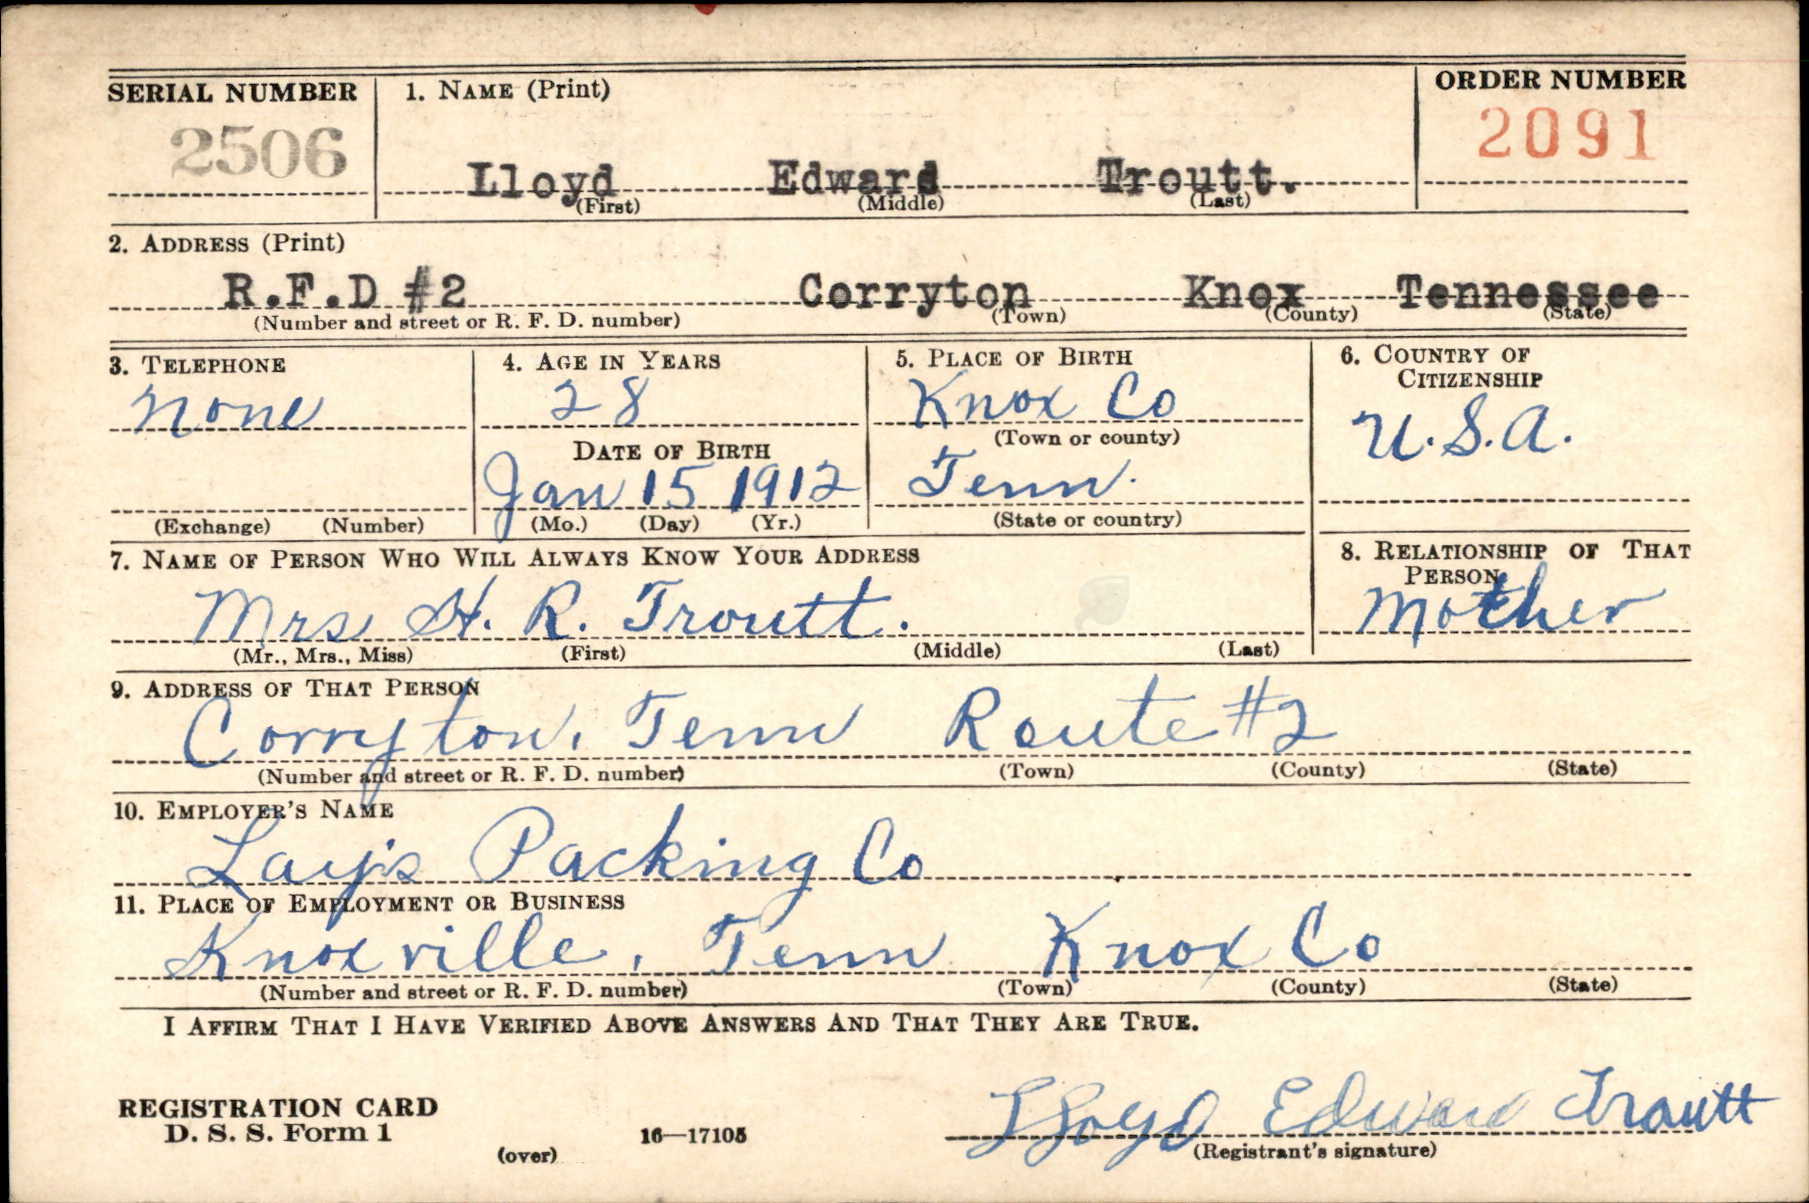 SERIAL NUMBER 1. NAME (Print) ORDER NUMBER
2506 2091
Lloyd Edward Troutt.
(First) (Middle) (Last)
2. ADDRESS (Print)
R.F.D #2 Corryton Knox Tennessee
(Number and street or R. F. D. number) (Town) (County) (State)
3. TELEPHONE 4. AGE IN YEARS 5. PLACE OF BIRTH 6. COUNTRY OF CITIZENSHIP
None 28 Knox Co U.S.A.
DATE OF BIRTH (Town or county)
Jan 15 1912 Tenn.
(Exchange) (Number) (Mo.) (Day) (Yr.) (State or country)
7. NAME OF PERSON WHO WILL ALWAYS KNOW YOUR ADDRESS 8. RELATIONSHIP OF THAT PERSON
Mrs H. R. Troutt. Mother
(Mr., Mrs., Miss) (First) (Middle) (Last)
9. ADDRESS OF THAT PERSON
Corryton, Tenn Route #2
(Number and street or R. F. D. number) (Town) (County) (State)
10. EMPLOYER'S NAME
Lay's Packing Co
11. PLACE OF EMPLOYMENT OR BUSINESS
Knoxville, Tenn Knox Co
(Number and street or R. F. D. number) (Town) (County) (State)
I AFFIRM THAT I HAVE VERIFIED ABOVE ANSWERS AND THAT THEY ARE TRUE.
REGISTRATION CARD
D. S. S. Form 1 16—17105 Lloyd Edward Troutt
(over) (Registrant's signature)